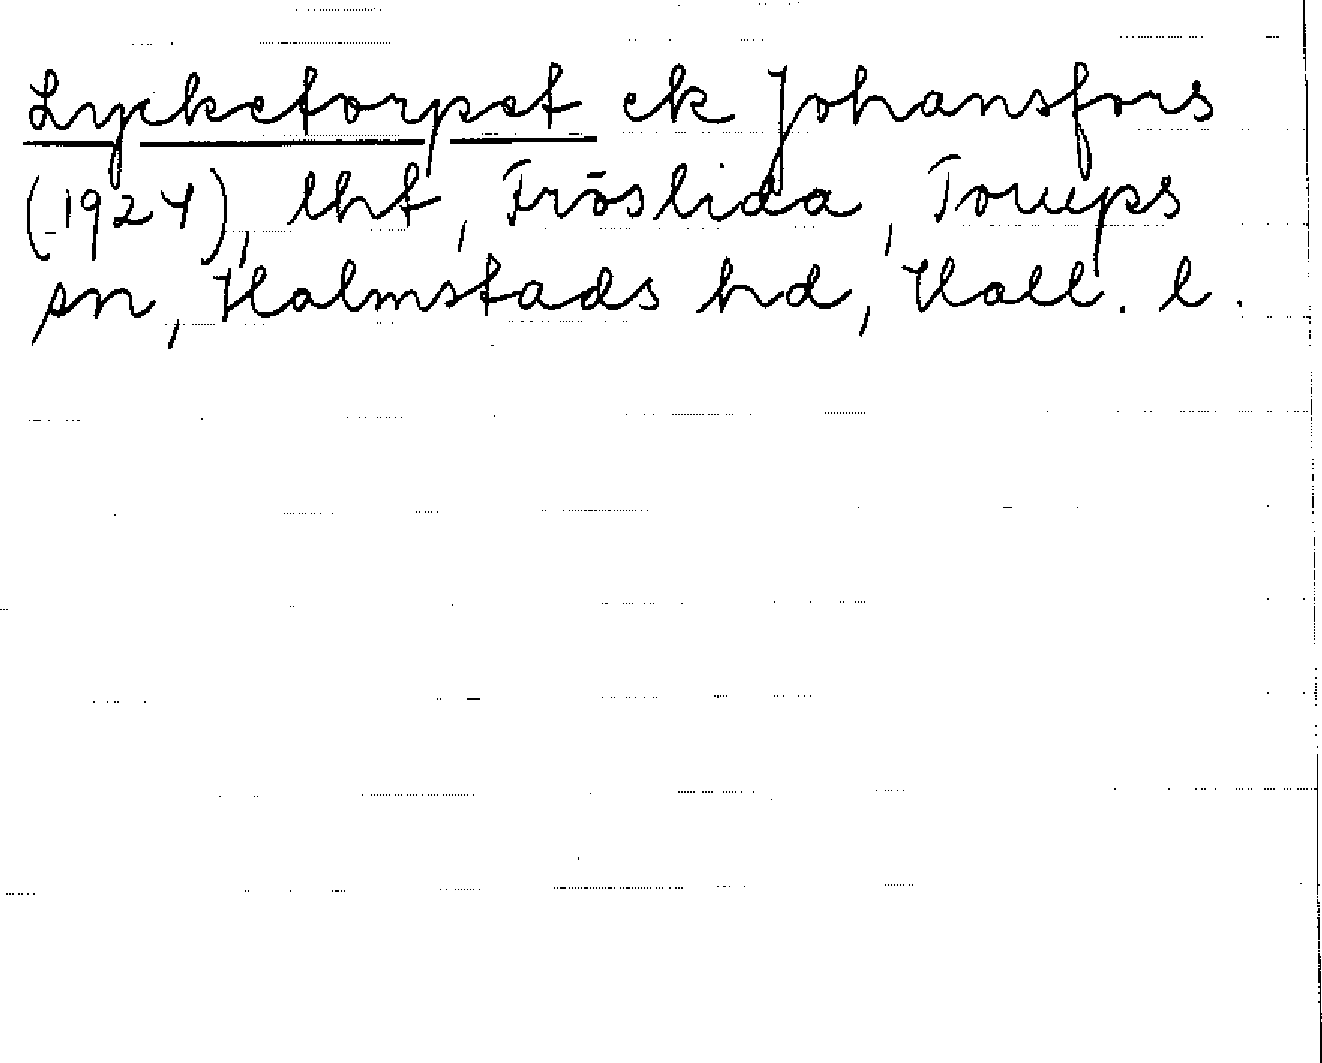 Lycketorpet ek Johansfors
(1924), lht, Fröslida, Torups
sn, Halmstads hd, Hall. l.